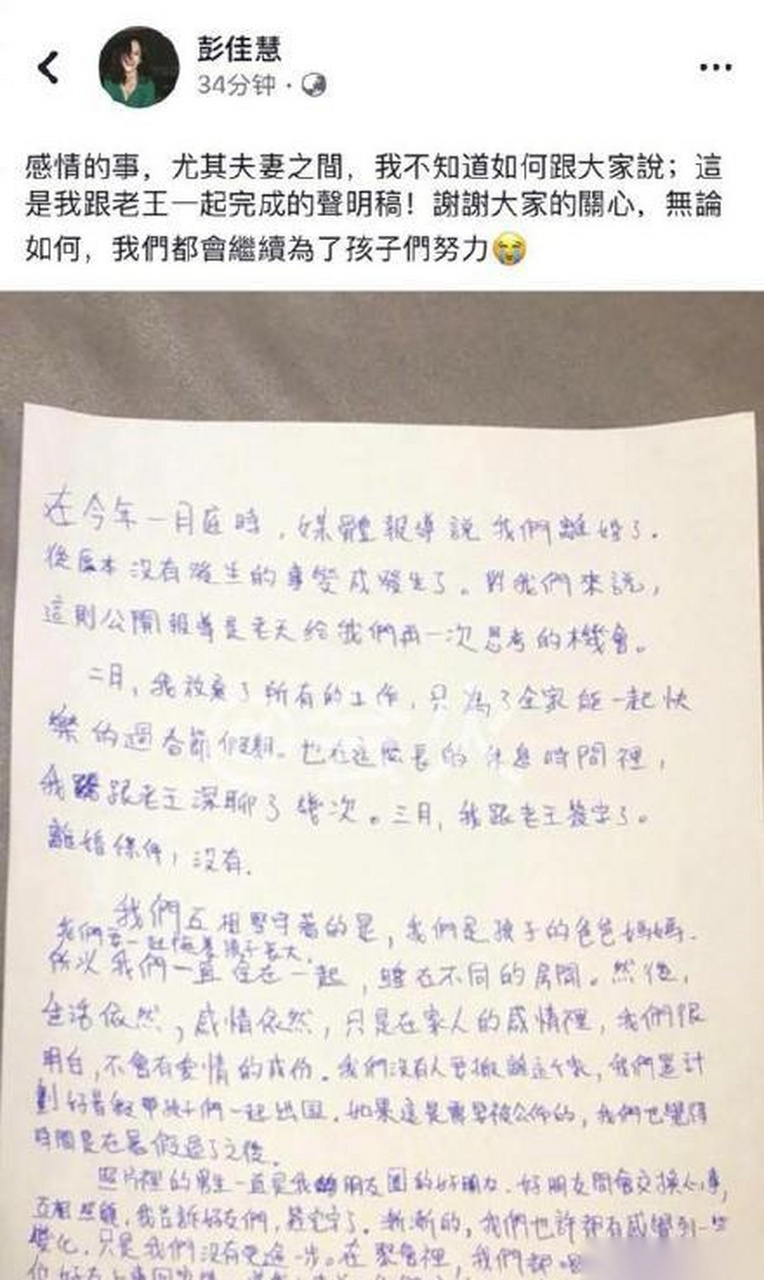 彭佳慧
34分钟
感情的事，尤其夫妻之間，我不知道如何跟大家說；這
是我跟老王一起完成的聲明稿！謝謝大家的關心，無論
如何，我們都會繼續為了孩子們努力😭
在今年一月底時，媒體報導說我們離婚了。
從原本沒有發生的事變成發生了。對我們來說，
這則公開報導是老天給我們再一次思考的機會。
二月，我放棄了所有的工作，只為了全家能一起快
樂的過春節假期。也在這麼長的休息時間裡，
我跟老王深聊了幾次。三月，我跟老王簽字了。
離婚條件，沒有。
我們互相堅守著的是，我們是孩子的爸爸媽媽。
我們要一起陪著孩子長大。
所以我們一直住在一起，睡在不同的房間。然後，
生活依然，感情依然，只是在家人的感情裡，我們很
明白，不會有愛情的成份。我們沒有人要搬離這個家，我們還計
劃好暑假帶孩子們一起出國。如果這是需要被公佈的，我們也覺得
時間是在暑假過了之後。
照片裡的男生一直是我朋友團的好朋友。好朋友間會交換心事，
互相照顧，我告訴好友們，簽完字了。漸漸的，我們也許都有感覺到一些
變化，只是我們沒有更進一步。在聚會裡，我們都